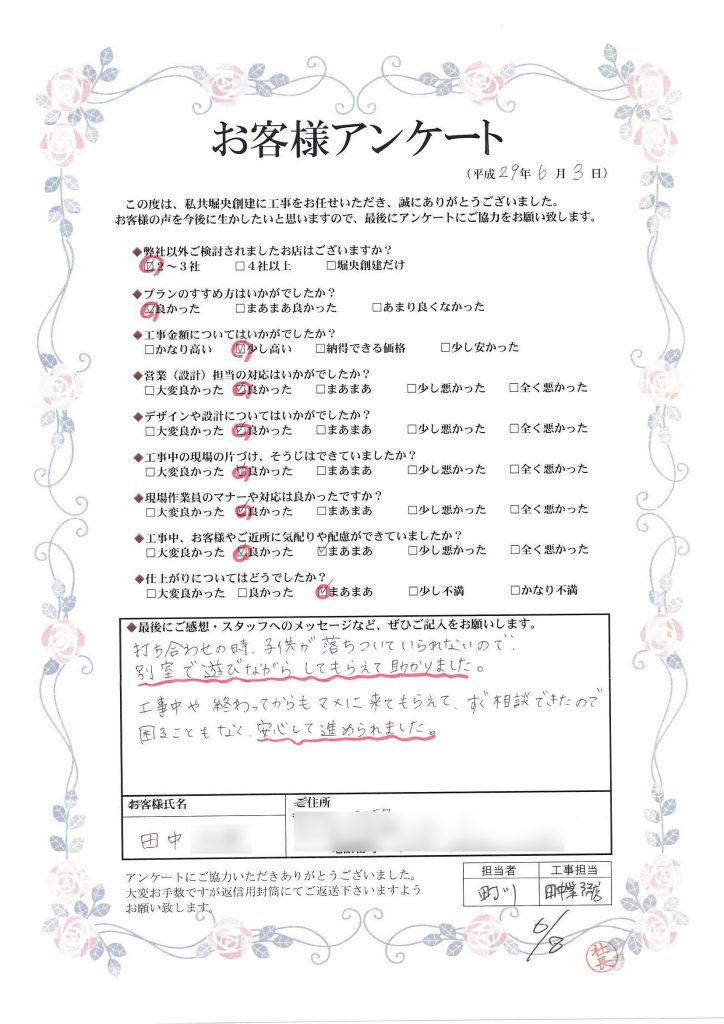 お客様アンケート
(平成29年6月3日)
この度は、私共堀央創建に工事をお任せいただき、誠にありがとうございました。
お客様の声を今後に生かしたいと思いますので、最後にアンケートにご協力をお願い致します。
◆弊社以外ご検討されましたお店はございますか?
☑2〜3社 □4社以上 □堀央創建だけ
◆プランのすすめ方はいかがでしたか?
☑良かった □まあまあ良かった □あまり良くなかった
◆工事金額についてはいかがでしたか?
□かなり高い ☑少し高い □納得できる価格 □少し安かった
◆営業(設計)担当の対応はいかがでしたか?
□大変良かった ☑良かった □まあまあ □少し悪かった □全く悪かった
◆デザインや設計についてはいかがでしたか?
□大変良かった ☑良かった □まあまあ □少し悪かった □全く悪かった
◆工事中の現場の片づけ、そうじはできていましたか?
□大変良かった ☑良かった □まあまあ □少し悪かった □全く悪かった
◆現場作業員のマナーや対応は良かったですか?
□大変良かった ☑良かった □まあまあ □少し悪かった □全く悪かった
◆工事中、お客様やご近所に気配りや配慮ができていましたか?
□大変良かった ☑良かった ☑まあまあ □少し悪かった □全く悪かった
◆仕上がりについてはどうでしたか?
□大変良かった □良かった ☑まあまあ □少し不満 □かなり不満
◆最後にご感想・スタッフへのメッセージなど、ぜひご記入をお願いします。
打ち合わせの時、子供が落ちついていられないので、
別室で遊びながらしてもらえて助かりました。
工事中や終わってからもマメに来てもらえて、すぐ相談できたので
困ることもなく、安心して進められました。
お客様氏名 ご住所
田中
アンケートにご協力いただきありがとうございました。
大変お手数ですが返信用封筒にてご返送下さいますよう
お願い致します。
担当者 工事担当
町川
6/8
社長